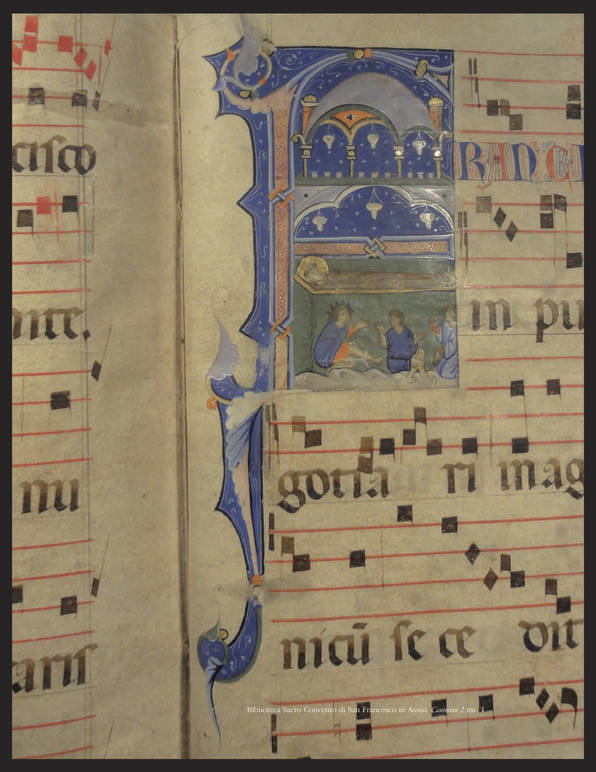 cisco
nite.
nu
aris
FRANCI
in pu
gotia ri mag
nicū se ce dit
Biblioteca Sacro Convento di San Francesco in Assisi, Cantorino 2 ms. 1